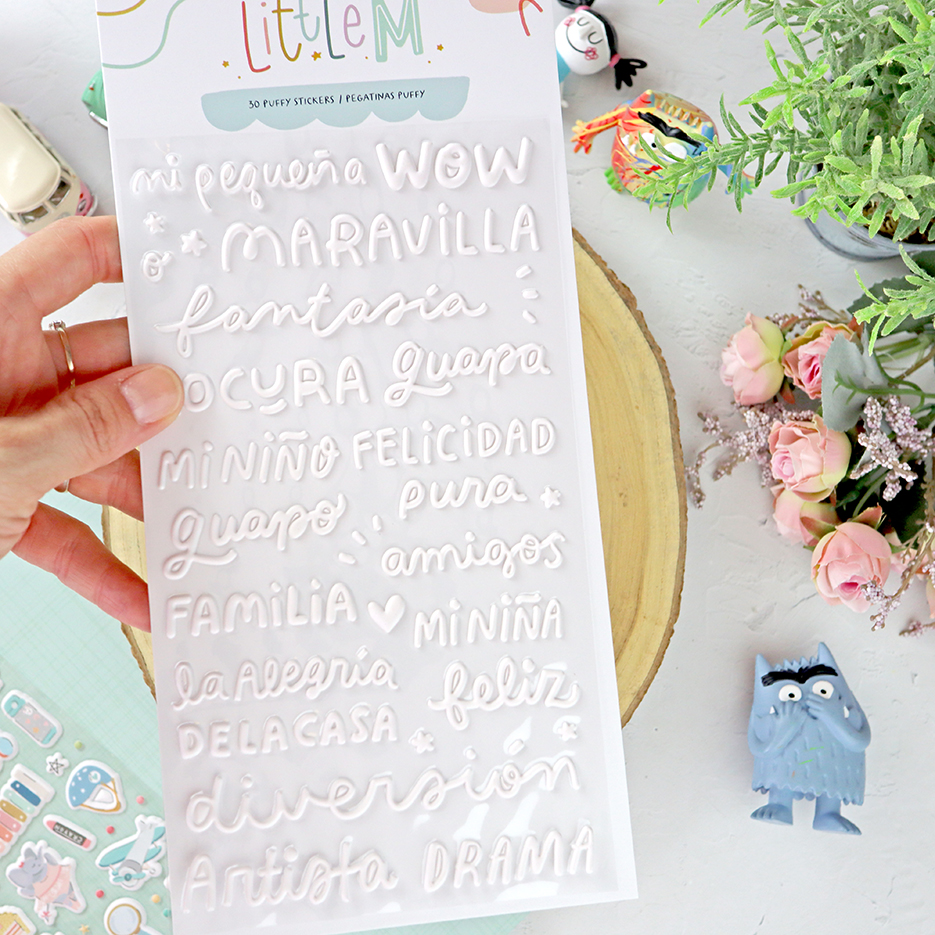 LittleM
30 PUFFY STICKERS / PEGATINAS PUFFY
mi pequeña WOW
o MARAVILLA
fantasía
OCURA guapa
MiNiÑO FELiCiDAD
guapo pura
amigos
FAMiLiA MiNiÑA
la Alegría feliz
DE LA CASA
diversión
Artista DRAMA
CRAYON